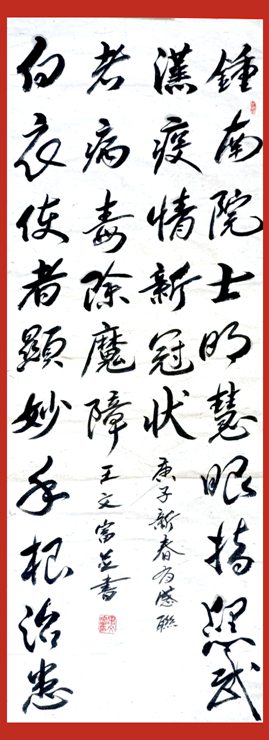 鍾南院士明慧眼揭武
漢疫情新冠狀
庚子新春有感聯
白衣使者顯妙手根治患
者病毒除魔障
王文宗並書